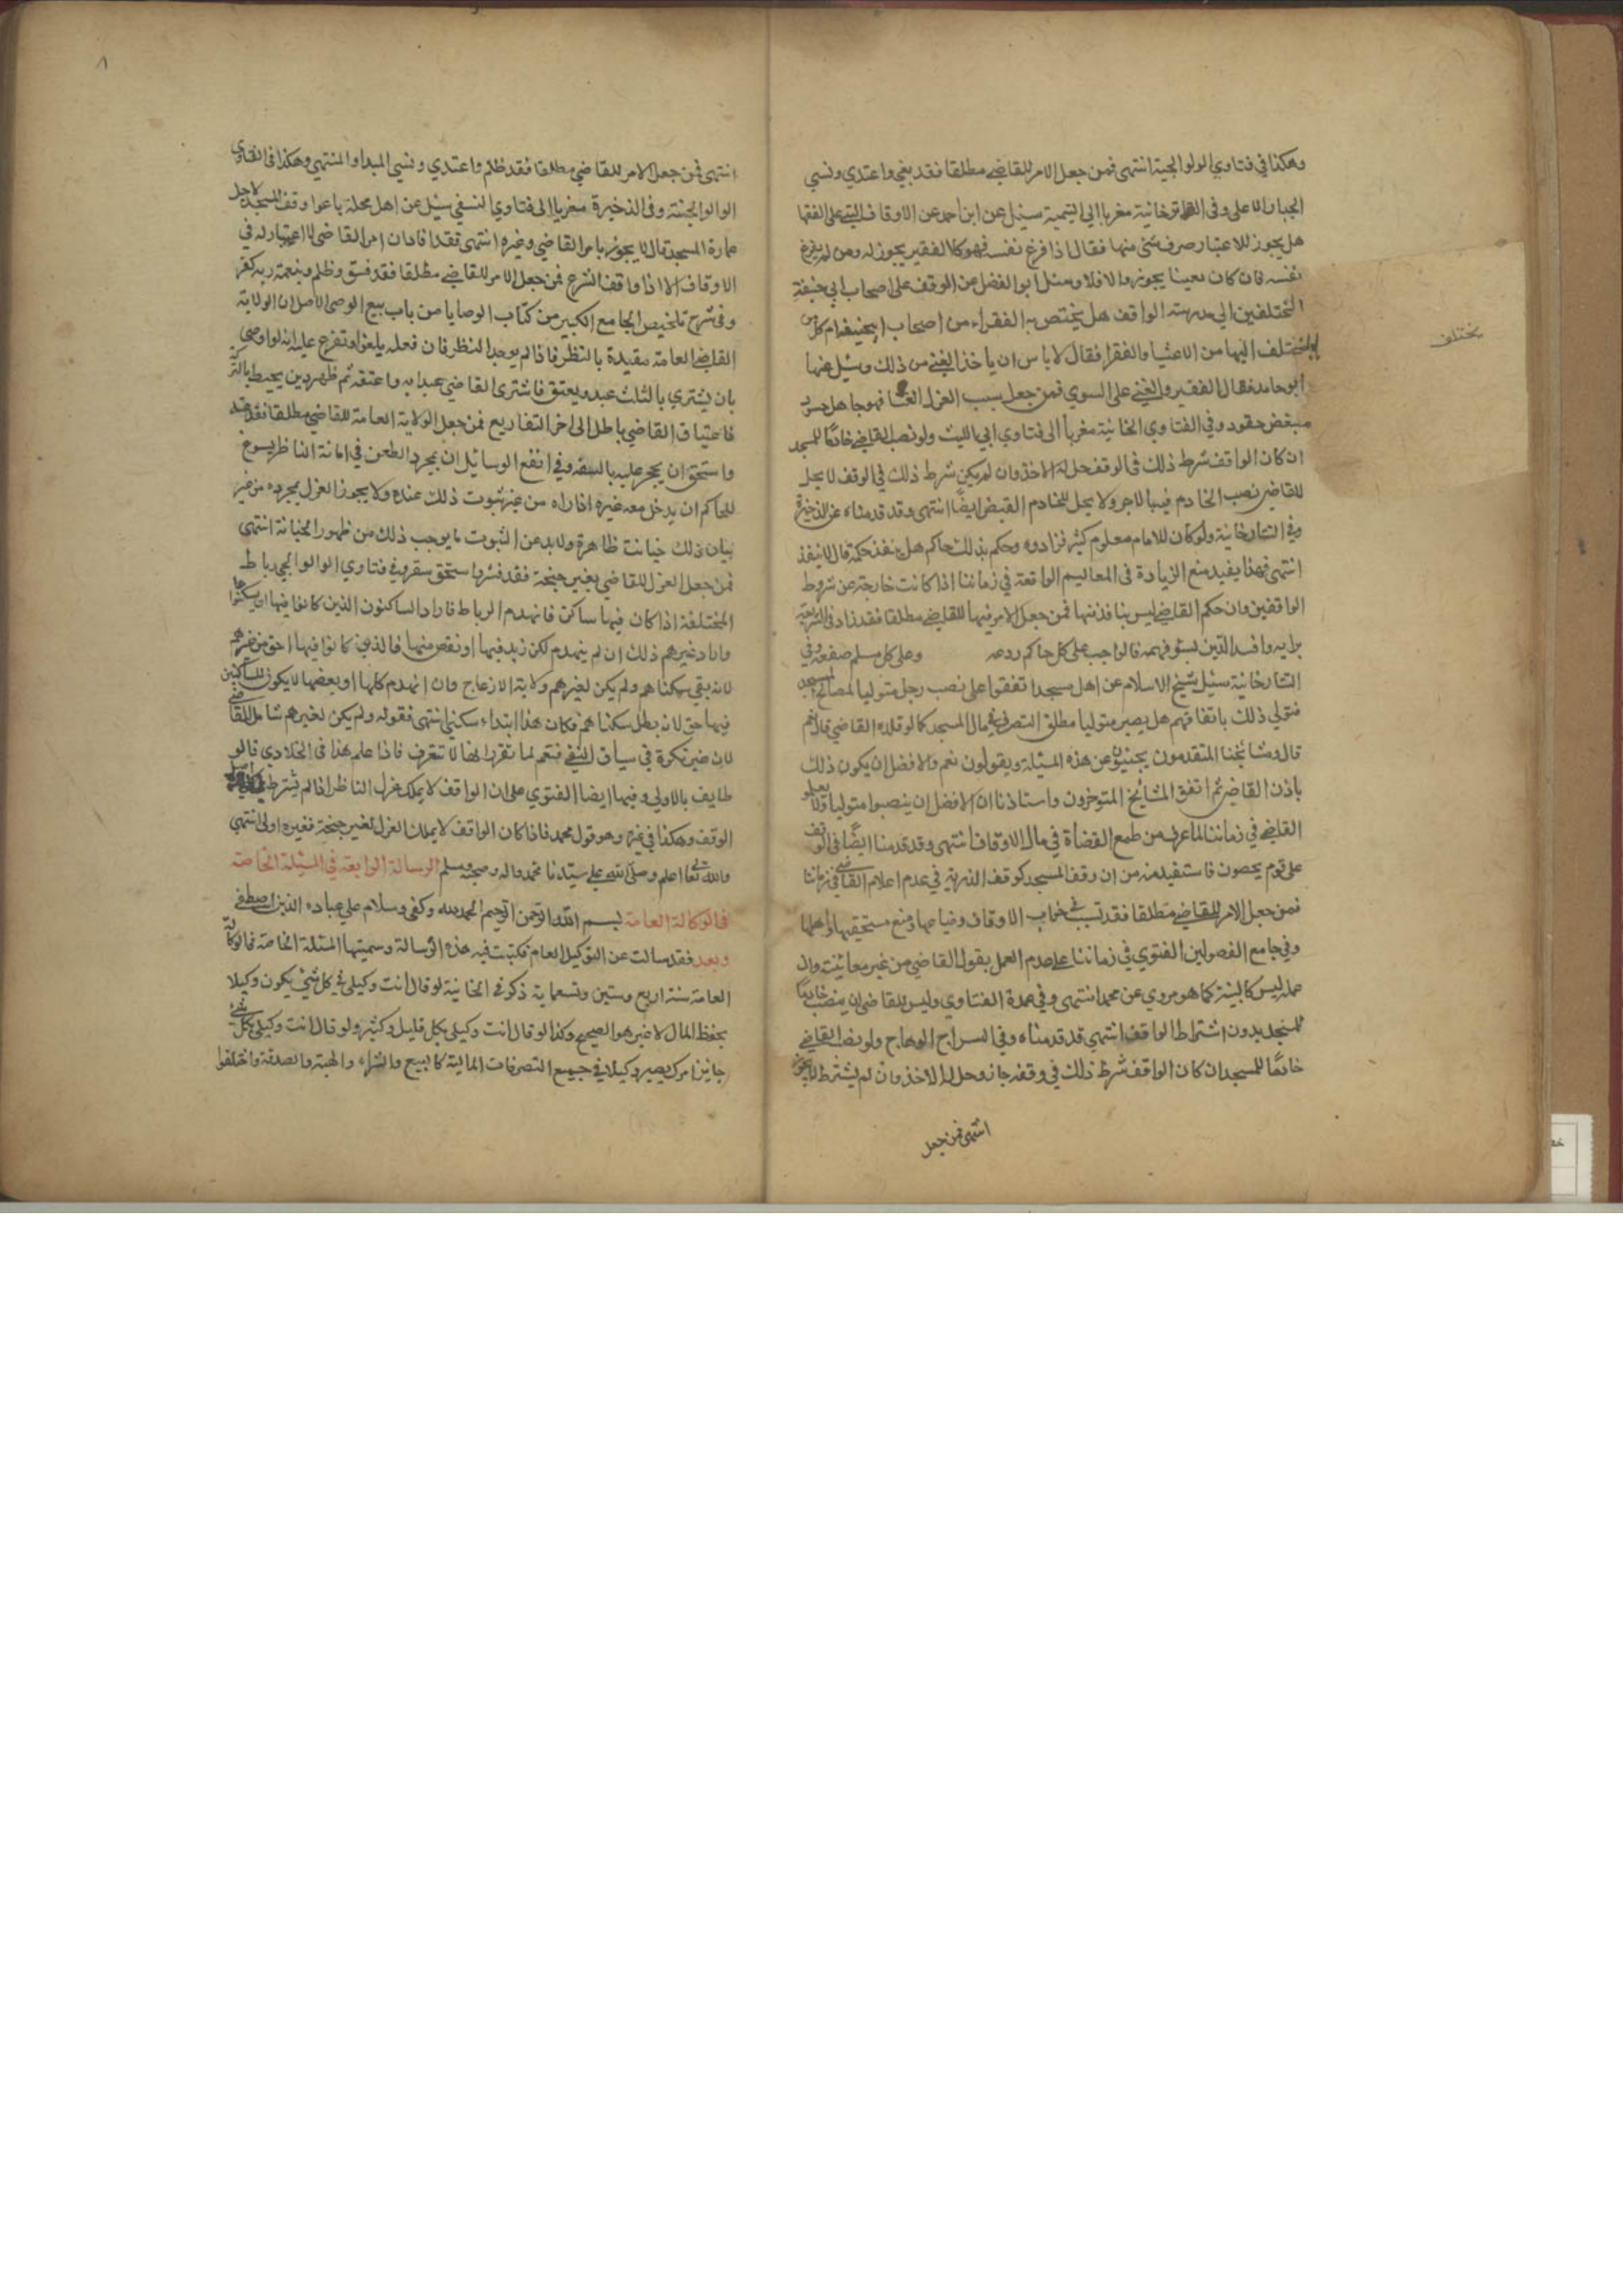 وهكذا في فتاوي الولوالجية انتهى فمن جعل الامر للقاضي مطلقا فقد بغي واعتدي ونسي
الجبار الاعلى وفي التاترخانية مغربا الي اليتيمية سئل عن ابن احمد عن الاوقاف التي على الفقها
هل يجوز للاعتبار صرف شئ منها فقال اذا فرغ نفسه فهو كالفقير يجوز له ومن لم يفرغ
نفسه فان كان معينا يجوز والا فلا وسئل ابو الفضل عن الوقف على اصحاب ابي حنيفة
المختلفين الي مدرسته الواقف هل يختص به الفقراء من اصحاب ابيحنيفة ام كل من
يختلف
يختلف اليها من الاغنيا والفقرا فقال لا باس ان ياخذ الغني من ذلك وسئل عنها
ابو حامد فقال الفقير والغني على السوي فمن جعل سبب العزل الغنا فهو جاهل حسود
مبغض حقود وفي الفتاوي الخانية مغربا الى فتاوي ابي الليث ولو نصب القاضي خادما للمسجد
ان كان الواقف شرط ذلك في الوقف حل له الاخذ وان لم يكن شرط ذلك في الوقف لا يحل
للقاضي نصب الخادم فيه بالاجر ولا يحل للخادم القبض ايضا انتهى وقد قدمناه عن الذخيرة
وفي التتارخانية ولو كان للامام معلوم كثير فزادوه وحكم بذلك حاكم هل ينفذ حكمه قال لا ينفذ
انتهى فهذا يفيد منع الزيادة في المعاليم الواقعة في زماننا اذا كانت خارجة عن شروط
الواقفين وان حكم القاضي ليس بنافذ فيها فمن جعل الامر فيها للقاضي مطلقا فقد زاد في الشريعة
برايه وافسد الدين بسؤ فهمه فالواجب على كل حاكم ردعه وعلى كل مسلم صفعه وفي
التتارخانية سئل شيخ الاسلام عن اهل مسجد اتفقوا على نصب رجل متوليا لمصالح المسجد
فتولي ذلك باتفاقهم هل يصير متوليا مطلق التصرف في مال المسجد كما لو قلده القاضي قال نعم
قال ومشايخنا المتقدمون يجيبون عن هذه المسئلة ويقولون نعم والافضل ان يكون ذلك
باذن القاضي ثم اتفق المشايخ المتوخرون واستاذنا ان الافضل ان ينصبوا متوليا ولا يعلموا
القاضي في زماننا لما عرف من طمع القضاة في مال الاوقاف انتهى وقد قدمنا ايضا في الوقف
على قوم يحصون فاستفيد منه من ان وقف المسجد كوقف الذرية في عدم اعلام القاضي في زماننا
فمن جعل الامر للقاضي مطلقا فقد تسبب في خراب الاوقاف وضياعها ومنع مستحقيها واهلها
وفي جامع الفصولين الفتوي في زماننا على عدم العمل بقول القاضي من غير معاينة وان
عدله ليس كالبينة كما هو مروي عن محمد انتهى وفي عمدة الفتاوي وليس للقاضي ان ينصب خادما
للمسجد بدون اشتراط الواقف انتهى قد قدمناه وفي السراج الوهاج ولو نصب القاضي
خادما للمسجد ان كان الواقف شرط ذلك في وقفه جاز وحل له الاخذ وان لم يشترط لا يجوز
انتهى فمن جعل
٨
انتهى فمن جعل الامر للقاضي مطلقا فقد ظلم واعتدي ونسي المبدا والمنتهي وهكذا في الفتاوى
الولوالجية وفي الذخيرة مغربا الى فتاوي النسفي سئل عن اهل محلة باعوا وقف المسجد لاجل
عمارة المسجد قال لا يجوز بامر القاضي وغيره انتهى فقد افاد ان امر القاضي لا اعتبار له في
الاوقاف الا اذا وافق الشرع فمن جعل الامر للقاضي مطلقا فقد فسق وظلم وبنعمة ربه كفر
وفي شرح تلخيص الجامع الكبير من كتاب الوصايا من باب بيع الوصى الاصل ان الولاية
القاضي العامة مقيدة بالنظر فاذا لم يوجد النظر فان فعله يلغوا وتفرع عليه انه لو اوصي
بان يشتري بالثلث عبد ويعتق فاشترى القاضي عبدا به واعتقه ثم ظهر دين يحيط بالتركة
فاعتاق القاضي باطل الى اخر التفاريع فمن جعل الولاية العامة للقاضي مطلقا فقد
واستحق ان يحجر عليه بالسفه وفي انفع الوسايل ان بمجرد الطعن في امانة الناظر يسوغ
للحاكم ان يدخل معه غيره اذا راه من غير ثبوت ذلك عنده ولا يجوز العزل بمجرده من غير
بيان ذلك خيانة ظاهرة ولا بد عن الثبوت ما يوجب ذلك من ظهور الخيانة انتهى
فمن جعل العزل للقاضي بغير جنحة فقد فسر واستحق سقر وفي فتاوي الولوالجي رباط
المختلفة اذا كان فيها ساكن فانهدم الرباط فاراد الساكنون الذين كانوا فيها ان يسكنوها
واراد غيرهم ذلك ان لم ينهدم لكن زيد فيها او نقص منها فالذين كانوا فيها احق من غيرهم
لانه بقي سكناهم ولم يكن لغيرهم ولاية الازعاج وان انهدم كلها او بعضها لا يكون للساكنين
فيها حق لانه بطل سكناهم فكان هذا ابتداء سكني انتهى فقوله ولم يكن لغيرهم شامل للقاضي
لان غير نكرة في سياق النفي فتعم لما تقرر انها لا تتعرف فاذا علم هذا في الخلاوي فالو
ظايف بالاولي وفيها ايضا الفتوي على ان الواقف لا يملك عزل الناظر اذا لم يشترط في اصل
الوقف وهكذا في غيره وهو قول محمد فاذا كان الواقف لا يملك العزل لغير جنحة فغيره اولى انتهي
والله تعالى اعلم وصلى الله على سيدنا محمد واله وصحبه وسلم الرسالة الرابعة في المسئلة الخاصة
في الوكالة العامة بسم الله الرحمن الرحيم الحمد لله وكفى وسلام على عباده الذين اصطفى
وبعد فقد سالت عن التوكيل العام فكتبت فيه هذه الرسالة وسميتها المسئلة الخاصة في الوكالة
العامة سنة اربع وستين وتسعماية ذكر في الخانية لو قال انت وكيلي في كل شئ يكون وكيلا
بحفظ المال لا غير هو الصحيح وكذا لو قال انت وكيلي بكل قليل وكثير ولو قال انت وكيلي بكل شئ
جايز امرك يصير وكيلا في جميع التصرفات المالية كالبيع والشراء والهبة والصدقة واختلفوا